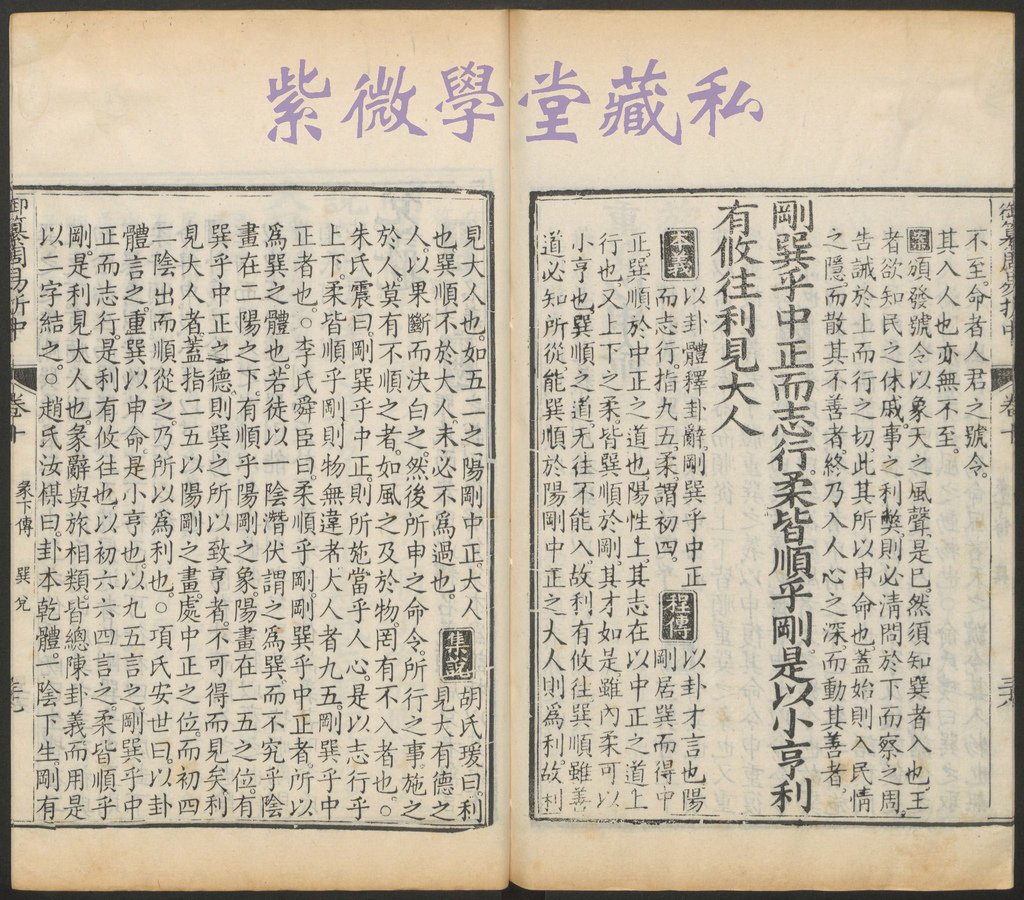 紫微學堂藏私
御纂周易折中
卷十
不至。命者人君之號令。
其入人也亦無不至。
案頒發號令以象天之風聲是已。然須知巽者入也。王
者欲知民之休戚。事之利弊。則必清問於下。而察之周。
告誡於上。而行之切。此其所以申命也。蓋始則入民情
之隱。而散其不善者。終乃入人心之深。而動其善者。
剛巽乎中正而志行柔皆順乎剛是以小亨利
有攸往利見大人
本義 以卦體釋卦辭。剛巽乎中正
而志行。指九五。柔謂初四。
程傳 以卦才言也。陽
剛居巽而得中
正。巽順於中正之道也。陽性上。其志在以中正之道上
行也。又上下之柔。皆巽順於剛。其才如是。雖內柔可以
小亨也。巽順之道。无往不能入。故利有攸往。巽順雖善
道。必知所從。能巽順於陽剛中正之大人。則爲利。故利
見大人也。如五二之陽剛中正。大人
也。巽順不於大人。未必不爲過也。
集說 胡氏瑗曰。利
見大有德之
人。以果斷而決白之。然後所申之命令。所行之事。施之
於人。莫有不順之者。如風之及於物。罔有不入者也。○
朱氏震曰。剛巽乎中正。則所施當乎人心。是以志行乎
上下。柔皆順乎剛。則物無違者。大人者九五。剛巽乎中
正者也。○李氏舜臣曰。柔順乎剛。剛巽乎中正者。所以
爲巽之體也。若徒以一陰潛伏。謂之爲巽。而不究乎陰
畫在二陽之下。有順乎陽剛之象。陽畫在二五之位。有
巽乎中正之德。則巽之所以致亨者。不可得而見矣。利
見大人者。蓋指二五以陽剛之畫。處中正之位。而初四
二陰出而順從之。乃所以爲利也。○項氏安世曰。以卦
體言之。重巽以申命。是小亨也。以九五言之。剛巽乎中
正而志行。是利有攸往也。以初六六四言之。柔皆順乎
剛。是利見大人也。彖辭與旅相類。皆總陳卦義。而用是
以二字結之。○趙氏汝楳曰。卦本乾體。一陰下生。剛有
御纂周易折中
卷十
彖下傳 巽 兌